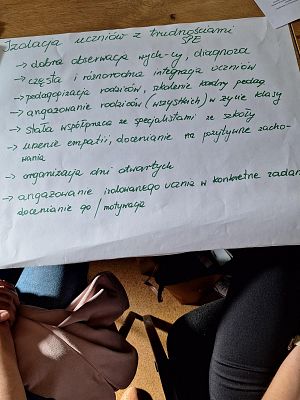 Izolacja uczniów z trudnościami
SPE
→ dobra obserwacja wych-cy, diagnoza
→ częsta i różnorodna integracja uczniów
→ pedagogizacja rodziców, szkolenie kadry pedag
→ angażowanie rodziców (wszystkich) w życie klasy
→ stała współpraca ze specjalistami ze szkoły
→ uczenie empatii, docenianie na pozytywne zacho-
wania
→ organizacja dni otwartych
→ angażowanie izolowanego ucznia w konkretne zadan
docenianie go / motywacja